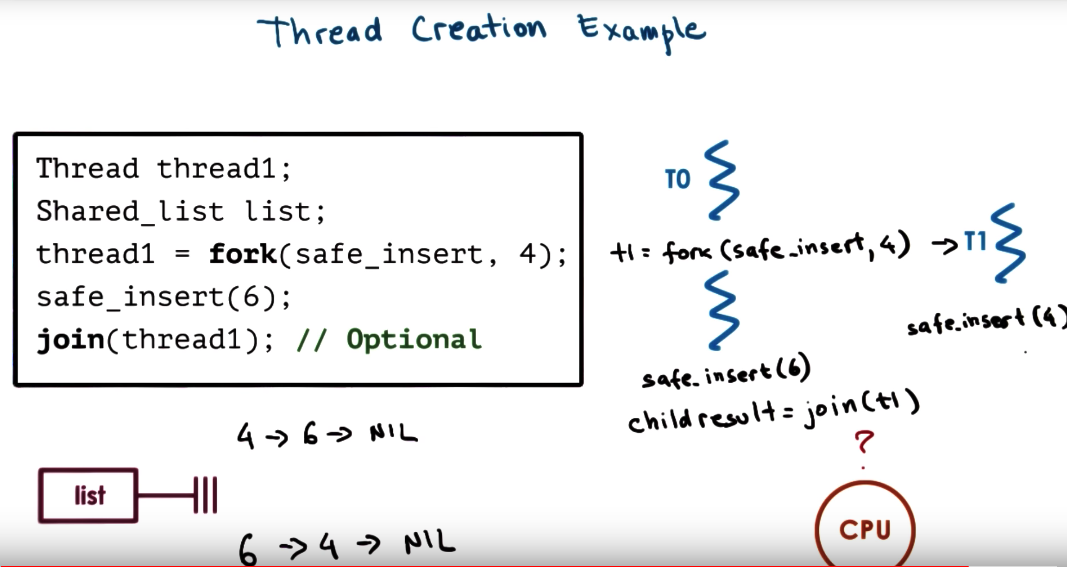 Thread Creation Example
Thread thread1;
Shared_list list;
thread1 = fork(safe_insert, 4);
safe_insert(6);
join(thread1); // Optional
T0
t1 = fork (safe_insert, 4) → T1
safe_insert (4)
safe_insert (6)
child result = join (t1)
4 → 6 → NIL
?
list
CPU
6 → 4 → NIL